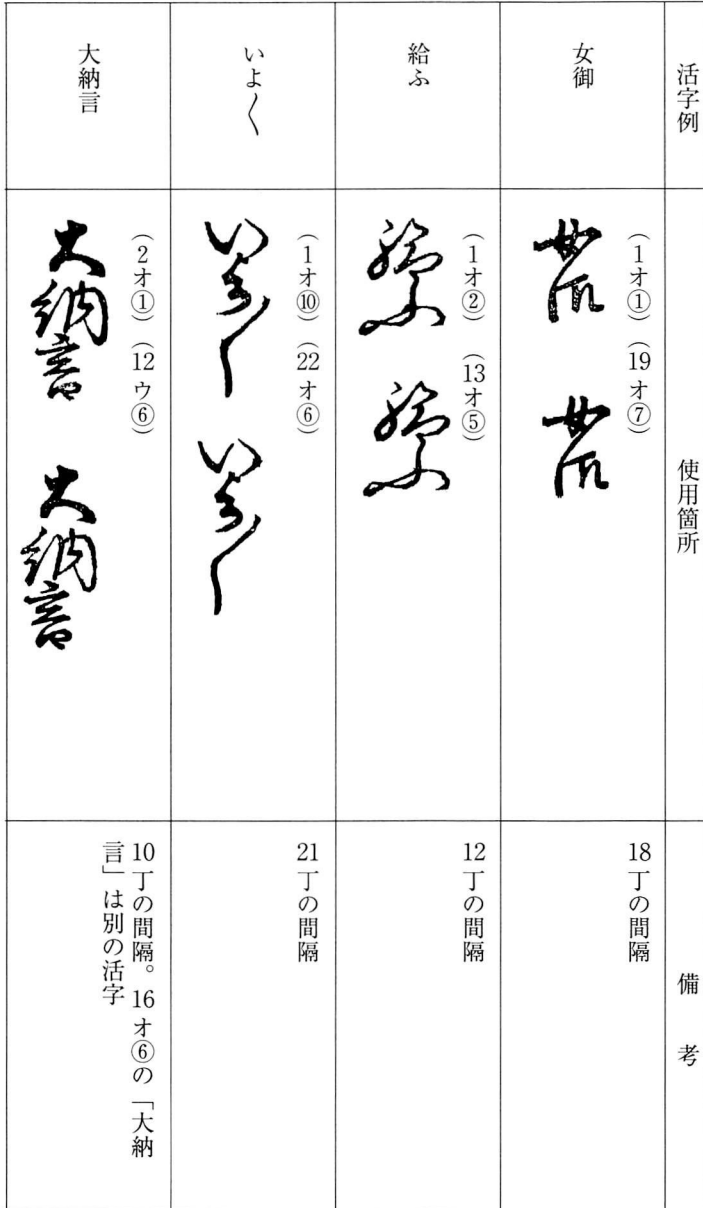 活字例
使用箇所
備考
女御
（1オ①）（19オ⑦）
女御 女御
18丁の間隔
給ふ
（1オ②）（13オ⑤）
給ふ 給ふ
12丁の間隔
いよ〱
（1オ⑩）（22オ⑥）
いよ〱 いよ〱
21丁の間隔
大納言
（2オ①）（12ウ⑥）
大納言 大納言
10丁の間隔。16オ⑥の「大納
言」は別の活字